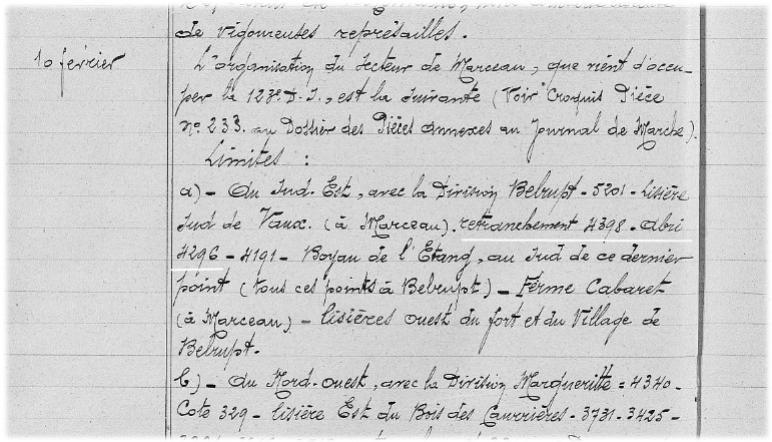 de vigoureuses représailles.
10 février
L'organisation du Secteur de Marceau, que vient d'occu-
per la 123e D.I., est la suivante (Voir Croquis Pièce
no 233 au Dossier des Pièces annexes au Journal de Marche).
Limites :
a) - Au Sud-Est, avec la Division Belrupt - 5201 - Lisière
Sud de Vaux. (à Marceau). retranchement 4398 - abri
4296 - 4191 - Boyau de l'Etang, au Sud de ce dernier
point (tous ces points à Belrupt) - Ferme Cabaret
(à Marceau) - lisières ouest du fort et du Village de
Belrupt.
b) - Au Nord-ouest, avec la Division Margueritte = 4340 -
Cote 329 - lisière Est du Bois des Caurrières - 3731 - 3425 -